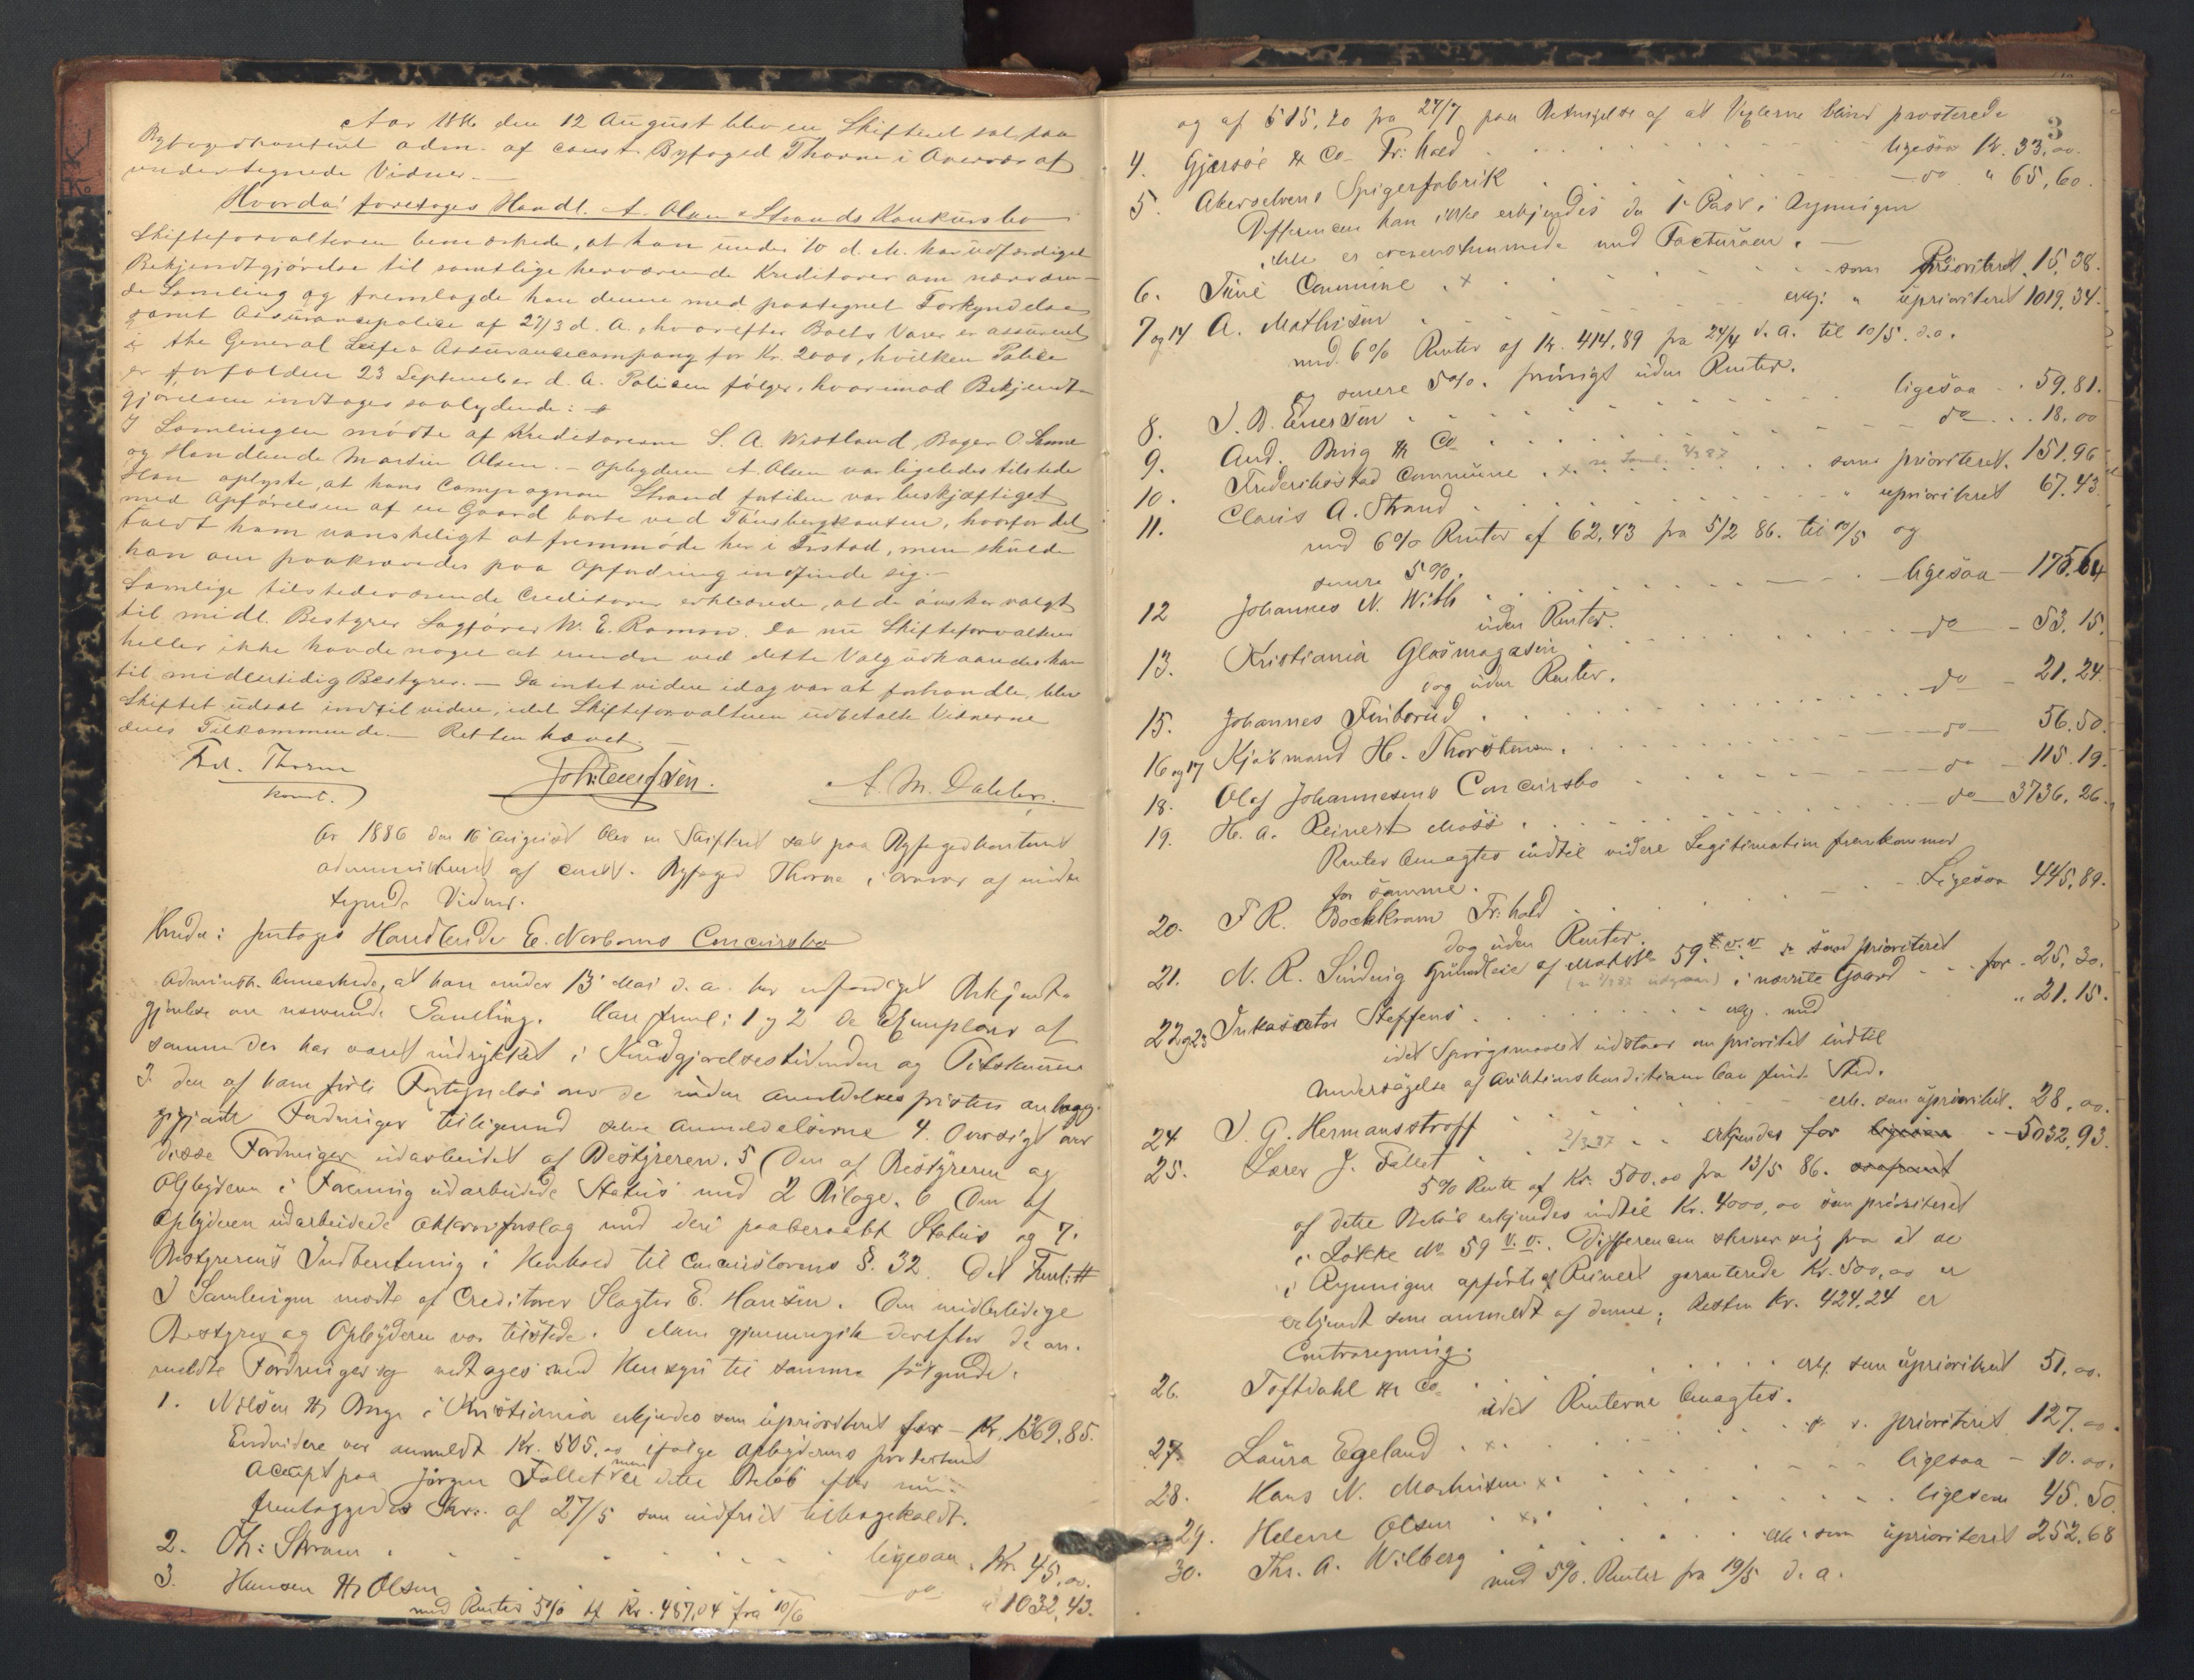 Aar 1886 den 12 August blev en Skifteret sat paa
Byfogedkontoret adm. af const. Byfoged Thorne i Overvær af
undertegnede Vidner. —
Hvorda: foretoges Handl. A. Olsen & Strands Konkursbo
Skifteforvalteren bemærkede, at han under 10 d. M. har udfærdiget
Bekjendtgjörelse til samtlige herværende Kreditorer om nærværen-
de Samling og fremlagde han denne med paategnet Forkyndelse
samt Assurancepolice af 27/3 d. A., hvorefter Boets Varer er assureret
i the General Assurancecompany for Kr. 2000, hvilken Police
er forfalden 23 September d. A. Policen fölger, hvorimod Bekjendt-
gjörelsen indtages saalydende:
I Samlingen mödte af Kreditorerne S. A. Westland, Bager O. Lunne
og Handlende Martin Olsen. — Opbyderen A. Olsen var ligeledes tilstede
Han oplyste, at hans Compagnon Strand fortiden var beskjæftiget
med Opförelsen af en Gaard borte ved Tönsbergkanten, hvorfor det
faldt ham vanskeligt at fremmöde her i Frstad, men skulde
han om paakrævedes paa Opfordring indfinde sig. —
Samlige tilstedeværende Creditorer erklærede, at de önsker valgt
til midl. Bestyrer Sagförer W. E. Ramm. Da nu Skifteforvalteren
heller ikke havde noget at erindre ved dette Valg udnævnes han
til midlertidig Bestyrer. — Da intet videre idag var at forhandle, blev
Skiftet udsat indtil videre, idet Skifteforvalteren udbetalte Vidnerne
deres Tilkommende. — Retten hævet. —
Frd. Thorne
konst.
A. M. Dahler.
Aar 1886 den 16 August blev en Skifteret sat paa Byfogedkontoret
administreret af const. Byfoged Thorne i Overvær af under-
tegnede Vidner.
Hvorda: foretoges Handlende E. Norboms Concursbo
Administr. bemærkede, at han under 13 Mai d. a. har udfærdiget Bekjendt-
gjörelse om nærværende Samling. Han freml: 1 og 2 de Exemplarer af
samme der har været indrykket i Kundgjörelsestidenden og Tilskueren
3 den af ham förte Fortegnelse over de inden Anmeldelsesfristen anlagg-
givne Fordringer tilligemed selve Anmeldelserne 4. Oversigt over
disse Fordringer udarbeidet af Bestyreren. 5 Den af Bestyreren og
Opbyderen i Forening udarbeidede Status med 2 Bilage. 6 Den af
Opbyderen udarbeidede Akkordforslag med deri paaberaabt Status og 7.
Bestyrerens Indberetning i Henhold til Concurslovens §. 32. Det Freml: #
I Samlingen mödte af Creditorer Slagter E. Hansen. Den midlertidige
Bestyrer og Opbyderen var tilstede. Man gjennemgik derefter de an-
meldte Fordringer og vedtages med Hensyn til samme fölgende:
1. Nilsen & Berge i Kristiania erkjendes som uprioriteret for – Kr. 1369.85.
Endvidere var anmeldt Kr. 505.00 ifölge Opbyderens protesteret
Accept paa Jörgen Follet men er dette Belöb efter nu
fremlagges Skr. af 27/5 som indfriet tilbagekaldt.
2. Th: Skram . . . ligesaa . Kr. 45,00.
3. Hansen & Olsen — do — " 1032,43.
med Renter 5% af Kr. 487,04 fra 10/6
3
og af 515,20 fra 27/7 paa Betingelse af at Vexlerne bliver protesterede
4. Gjersöe & Co Fr: hald . . . ligesaa Kr. 33,00.
5. Akerselvens Spigerfabrik . . . — do " 65,60.
Differencen kan ikke erkjendes da 1 Post i Regningen
ikke er overensstemmende med Facturaen. —
6. Tune Commune . x . . . som Prioriteret 15,38.
7 og 14 A. Mathisen . . . erkj. " uprioriteret 1019,34.
med 6% Renter af Kr. 414,89 fra 24/4 d. a. til 10/5. d.a.
og senere 5%. forövrigt uden Renter.
8. J. B. Enersen . . . ligesaa . . 59,81.
9. And. Bing & Co . . . do . . 18,00
10. Frederikstad Commune . x. 2/3 87 . . . som prioriteret. 151,96
11. Claus A. Strand . . . " uprioriteret 67,43
med 6% Renter af 62,43 fra 5/2 86. til 10/5 og
senere 5%.
12 Johannes N. With . . . ligesaa — 175,64
uden Renter.
13. Kristiania Glasmagasin . . . do — 53,15.
dog uden Renter.
15. Johannes Finborud . . . do — 21,24.
16 og 17 Kjöbmand H. Thorstensen. . . . do 56.50.
18. Olaf Johannesens Concursbo . . . do — 115.19.
19. H. A. Reinert Moss . . . do — 3736,26.
Renter benægtes indtil videre Legitimation fremkommer
for samme.
20. F R. Bockkram Fr: hald . . . Ligesaa 445,89.
dog uden Renter.
21. N. R. Sindwig Grundleie af Matr. 59 er som prioriteret
i nævnte Gaard . . for . 25,30.
22 og 23 Inkassator Steffens . . . erkj. med " 21.15.
idet Spörgsmaalet udstaar om prioritet indtil
Undersögelse af Auktionskonditionerne kan finde Sted.
24 J. G. Hermansstroff . . . erk. som uprioritet. 28,00.
25. Lærer J. Follet . . 2/3 87 . . erkjendes for ligesaa — 5032,93.
5% Rente af Kr. 500,00 fra 13/5 86.
af dette Belöb erkjendes indtil Kr. 4000,00 som prioriteret
i Lökke No 59 v.v. Differencen skriver sig fra at de
i Regningen opförte af Reinert garanterede Kr. 500,00 er
erkjendt som anmeldt af denne; Resten Kr. 424,24 er
Contraregning.
26. Toftdahl & Co. . . . erkj. som uprioriteret 51,00.
idet Renterne benægtes.
27 Laura Egeland . x . . . prioriteret 127,00.
28. Hans N. Mathisen x . . . ligesaa – 10.00.
29. Helene Olsen . x . . . ligesom 45.50
30. Thr. A. Wilberg . . . erk. som uprioriteret 252,68
med 5%. Renter fra 19/5 d. a.